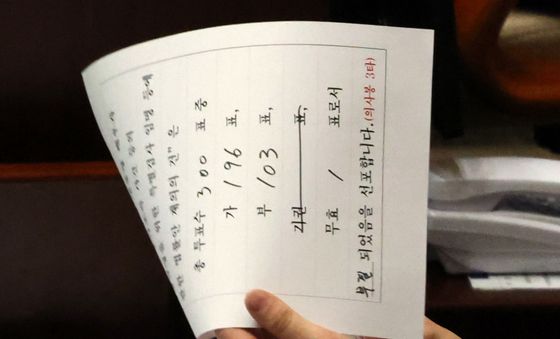 특별검사 임명 등에
법률안 재의의 건" 은
총 투표수 300 표 중
가 196 표,
부 103 표,
기권 표,
무효 1 표로서
부결 되었음을 선포합니다.(의사봉 3타)